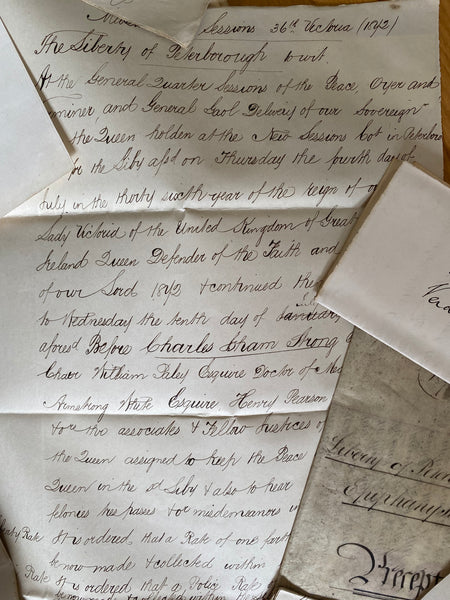 Sessions 36th Victoria (1872)
The Liberty of Peterborough to wit
At the General Quarter Sessions of the Peace, Oyer and
Terminer, and General Gaol Delivery of our Sovereign
the Queen holden at the New Sessions Cot in Peterboro
for the Liby afsd on Thursday the fourth day of
July in the thirty sixth year of the reign of o
Lady Victoria of the United Kingdom of Great
Ireland Queen Defender of the Faith and
of our Lord 1872 & continued the
to Wednesday the tenth day of January
July
aforesd Before Charles Cham Strong
Chair William Paley Esquire Doctor of Me
Armstrong White Esquire, Henry Pearson
& or the associates & Fellow Justices of
the Queen assigned to keep the Peace
Queen in the sd Liby & also to hear
felonies trespasses & or misdemeanors i
It is ordered that a Rate of one
be now made & collected within
Rate It is ordered that a Police Rate
Rate
Liberty of
Epiphany
Precept